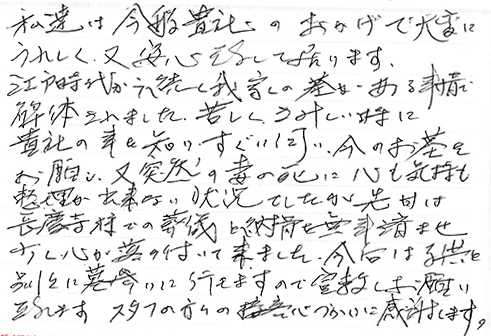 私達は今般貴社のおかげで大変に
うれしく、又安心致して居ります、
江戸時代から続く我家の墓を、ある事情で
解体されました。苦しく、さみしい時に
貴社の事を知りすぐに伺い、今のお墓を
お願い、又突然の妻の死に心も気持も
整理が出来ない状況でしたが先日は
長慶寺様での葬儀と納骨を無事済ませ
少し心が落付いて来ました。今后は子供と
別々に墓参いに行きますので宜敷しお願い
致します スタフの方々の心づかいに感謝します。